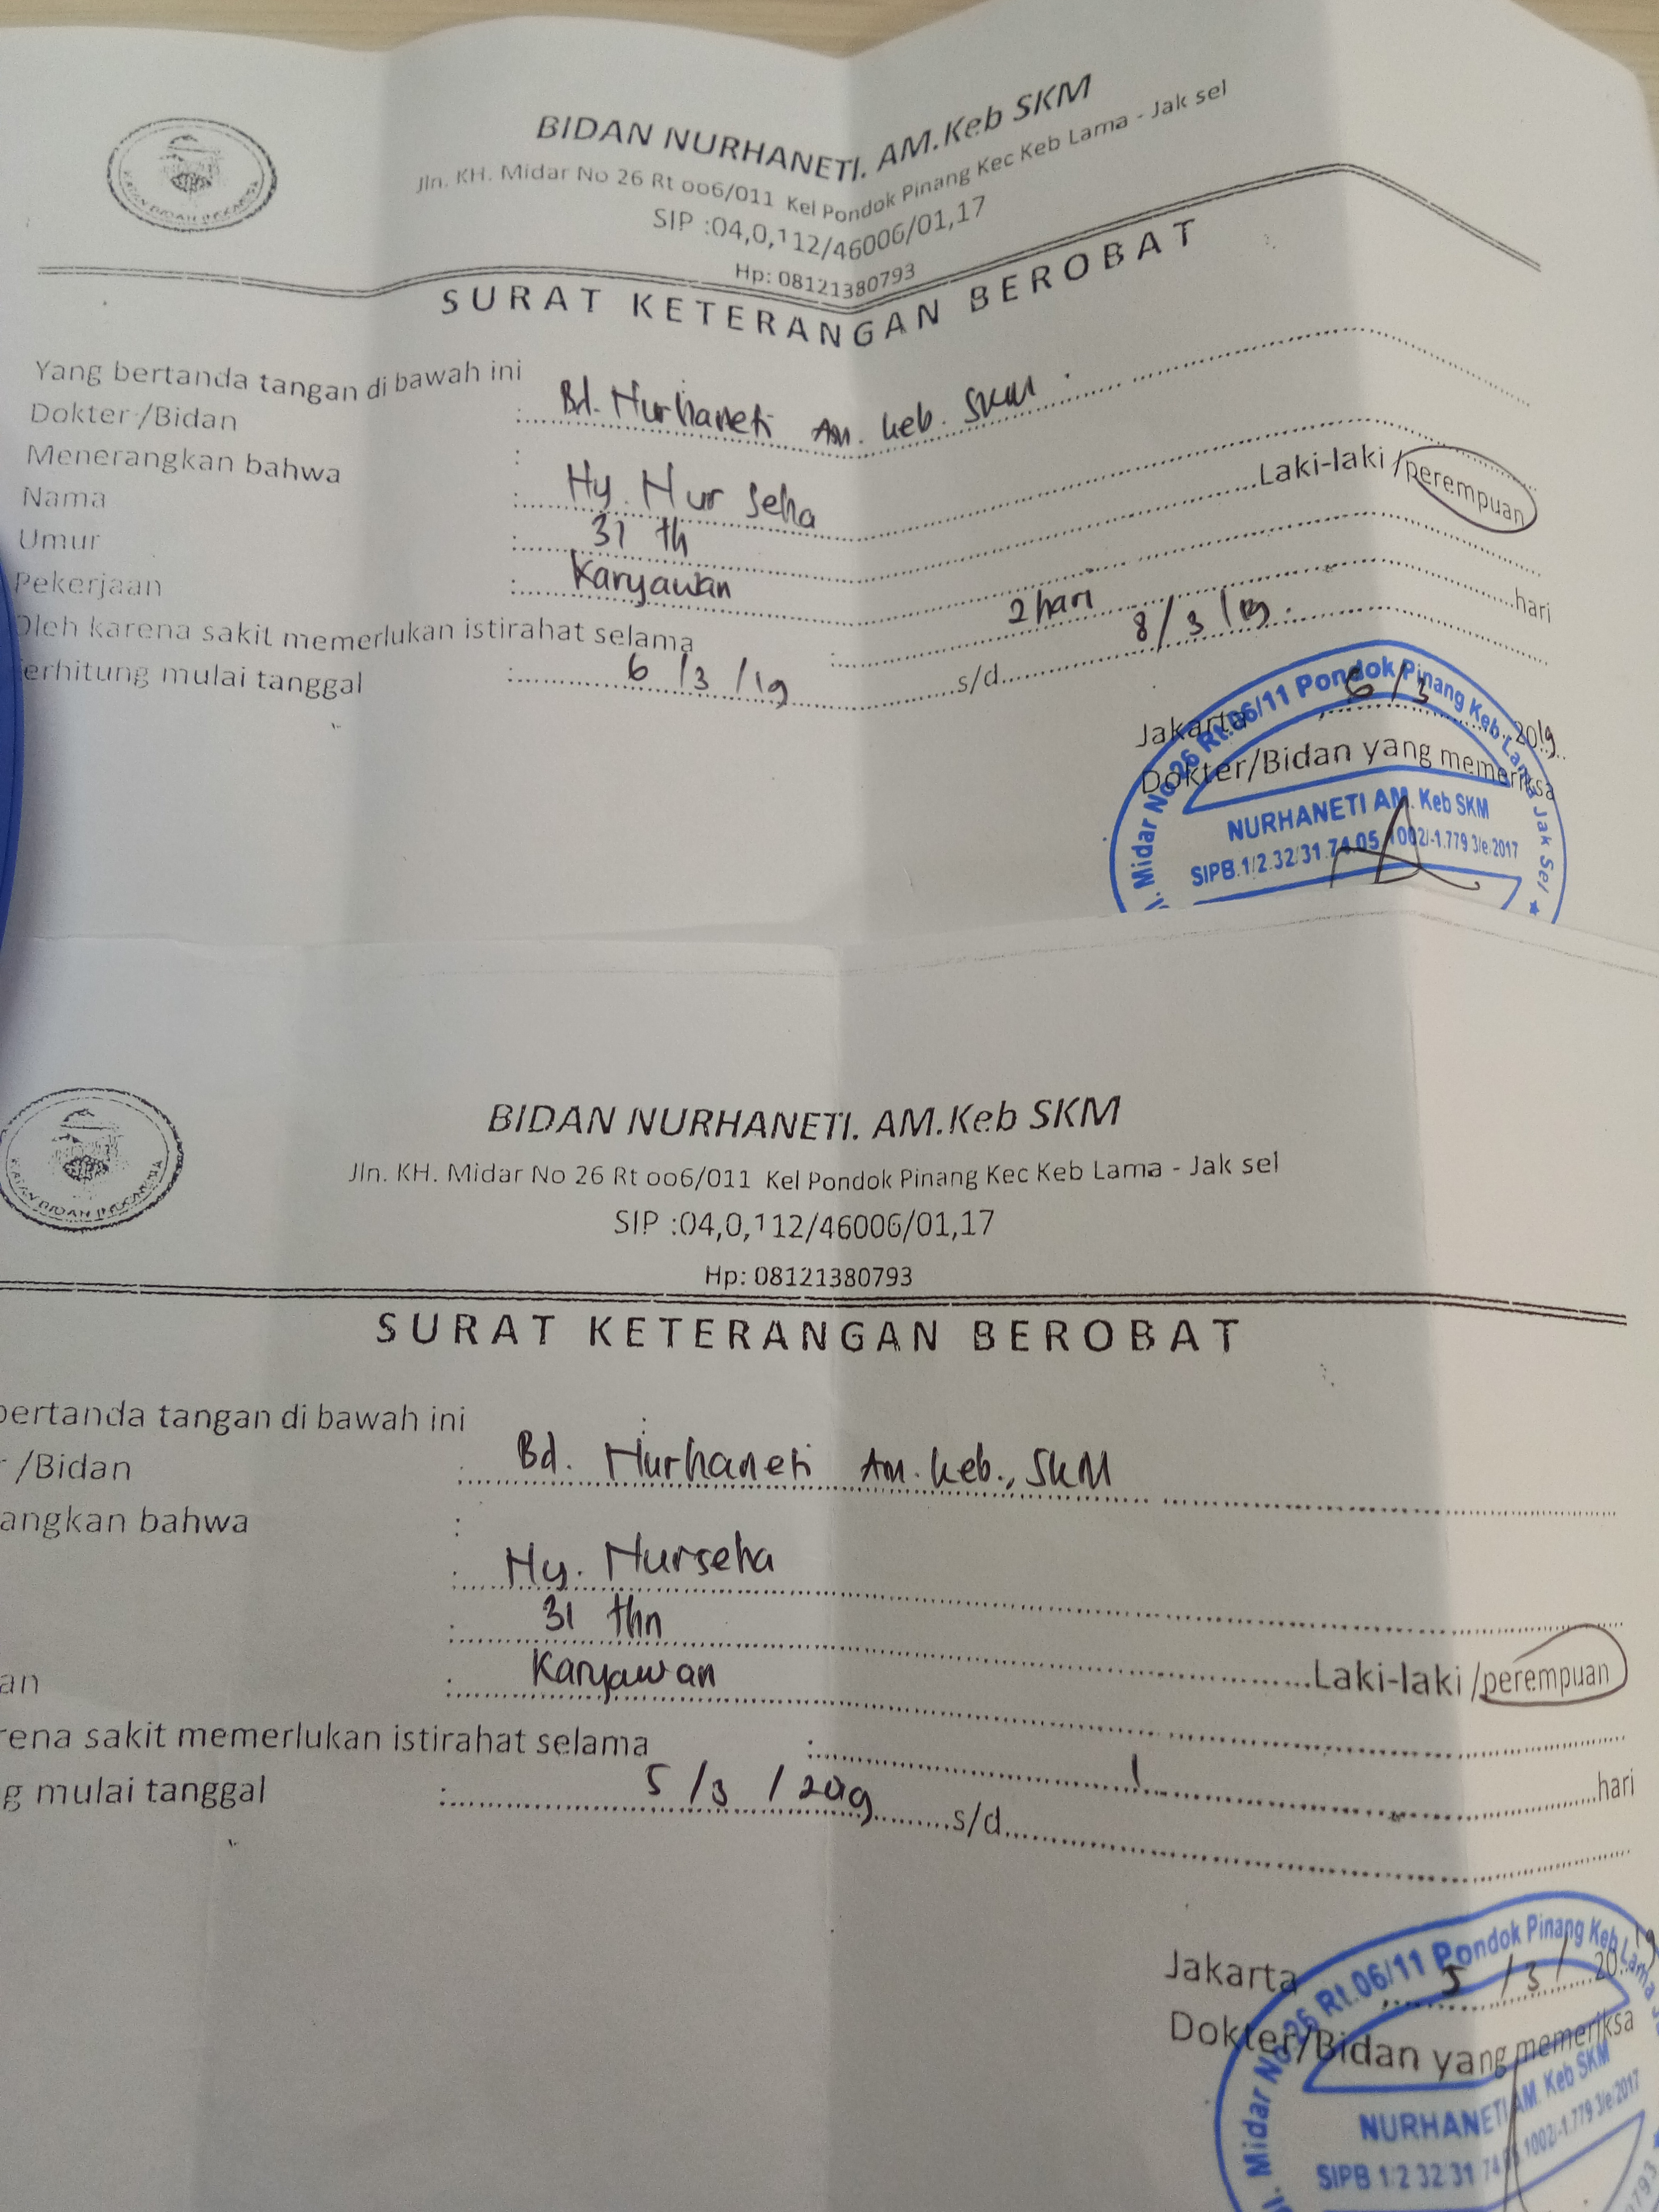 IKATAN BIDAN INDONESIA
BIDAN NURHANETI. AM.Keb SKM
Jln. KH. Midar No 26 Rt oo6/011 Kel Pondok Pinang Kec Keb Lama - Jak sel
SIP :04,0,112/46006/01,17
Hp: 08121380793
SURAT KETERANGAN BEROBAT
Yang bertanda tangan di bawah ini
Dokter /Bidan : Bd. Nurhaneti Am. keb. SKM
Menerangkan bahwa :
Nama : Ny. Nur Seha
Umur : 31 th Laki-laki /perempuan
Pekerjaan : Karyawan
Oleh karena sakit memerlukan istirahat selama : 2 hari hari
erhitung mulai tanggal : 6 /3 /19 s/d 8/3/19.
Jakarta, 6/3 2019
Dokter/Bidan yang memeriksa
l. Midar No.26 Rt.06/11 Pondok Pinang Keb Lama Jak Sel ★
NURHANETI AM. Keb SKM
SIPB.1/2.32/31.74.05.1002/-1.779.3/e/2017
IKATAN BIDAN INDONESIA
BIDAN NURHANETI. AM.Keb SKM
Jln. KH. Midar No 26 Rt oo6/011 Kel Pondok Pinang Kec Keb Lama - Jak sel
SIP :04,0,112/46006/01,17
Hp: 08121380793
SURAT KETERANGAN BEROBAT
bertanda tangan di bawah ini
/Bidan : Bd. Nurhaneti Am. keb., SKM
angkan bahwa :
: Ny. Nurseha
: 31 thn Laki-laki /perempuan
an : Karyawan
rena sakit memerlukan istirahat selama : 1 hari
g mulai tanggal : 5 /3 /2019 s/d
Jakarta, 5 /3/ 2019
Dokter/Bidan yang memeriksa
l. Midar No.26 Rt.06/11 Pondok Pinang Keb Lama
NURHANETI AM. Keb SKM
SIPB 1/2 32/31 74.05 1002/-1.779 3/e/2017